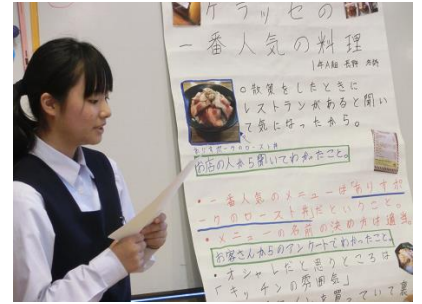 ケラッセの
一番人気の料理
1年A組
○散策をしたときに
レストランがあると聞い
て気になったから。
ありすポークのロースト丼
お店の人から聞いてわかったこと。
・一番人気のメニューは「ありすポ
ークのロースト丼」だということ。
・メニューの名前の決め方は適当。
お客さんからのアンケートでわかったこと。
・オシャレだと思うところは
「キッチンの雰囲気」